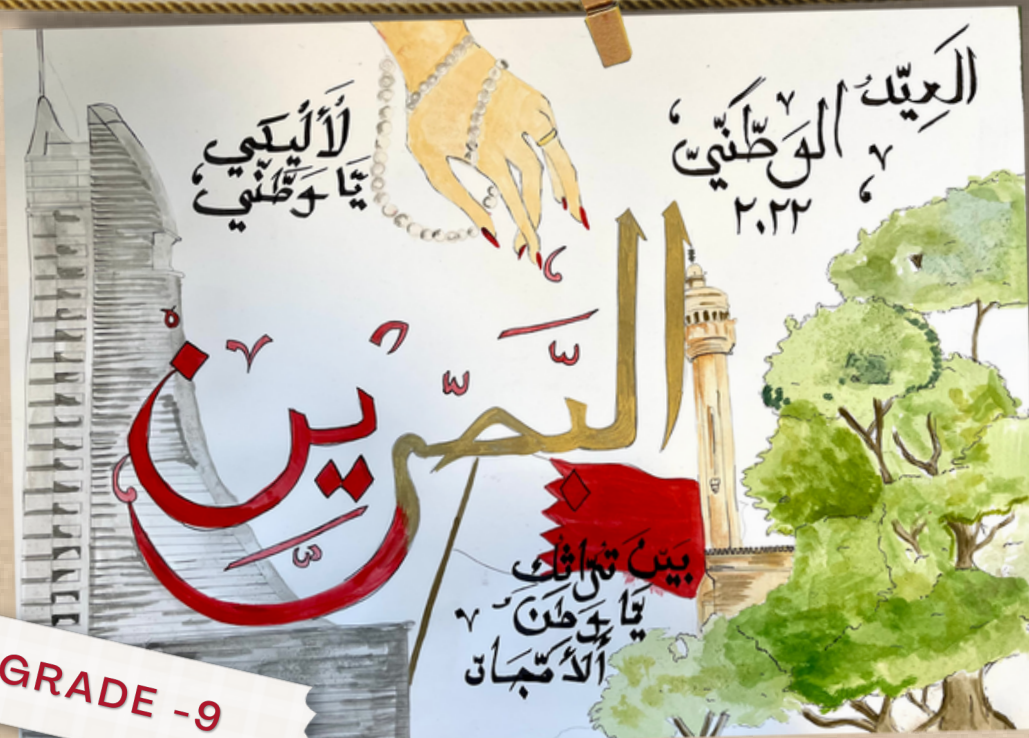 العيد
الوطني
٢٠٢٢
لأليكي
يا وطني
البحرين
بين تراثك
يا وطن
الأمجاد
GRADE -9